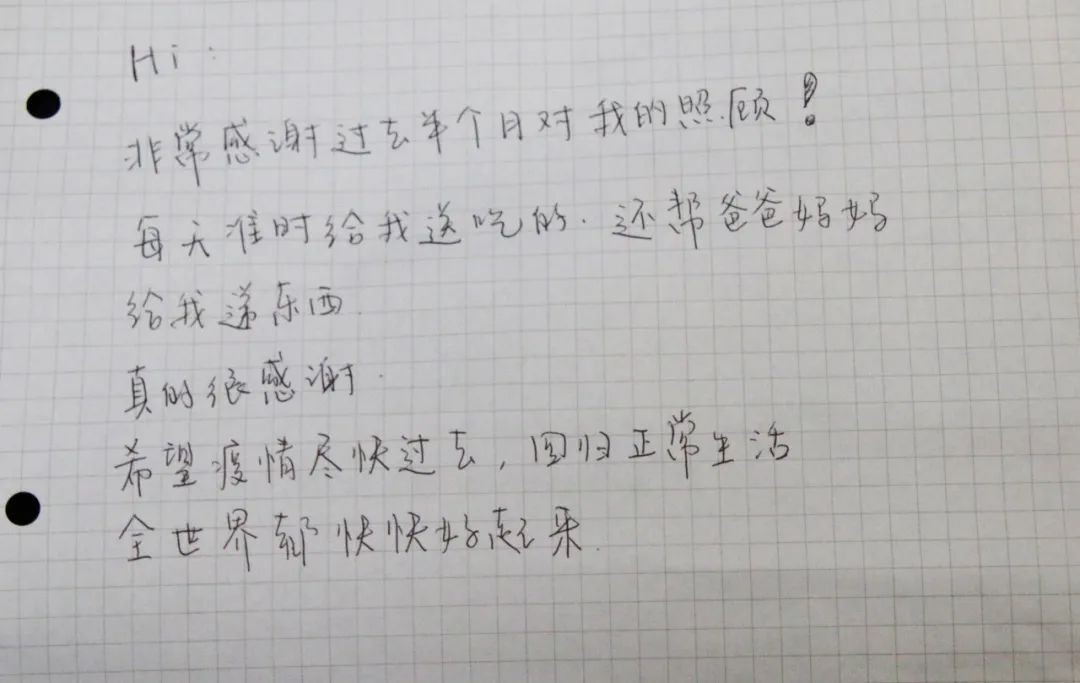 Hi：
非常感谢过去半个月对我的照顾！
每天准时给我送吃的.还帮爸爸妈妈
给我递东西.
真的很感谢.
希望疫情尽快过去，回归正常生活
全世界都快快好起来.